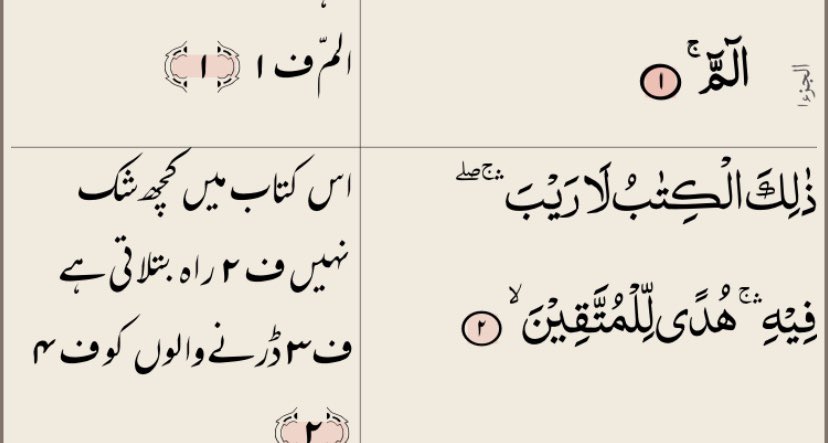 الٓمّٓ ۚ ۝۱
الجزء ۱
ذٰلِكَ الْكِتٰبُ لَا رَيْبَ ۛۚ ۖ
فِيْهِ ۛۚ هُدًى لِّلْمُتَّقِيْنَ ۙ ۝۲
المّ ف ۱ ﴿۱﴾
اس کتاب میں کچھ شک
نہیں ف ۲ راہ بتلاتی ہے
ف ۳ ڈرنے والوں کو ف ۴
﴿۲﴾